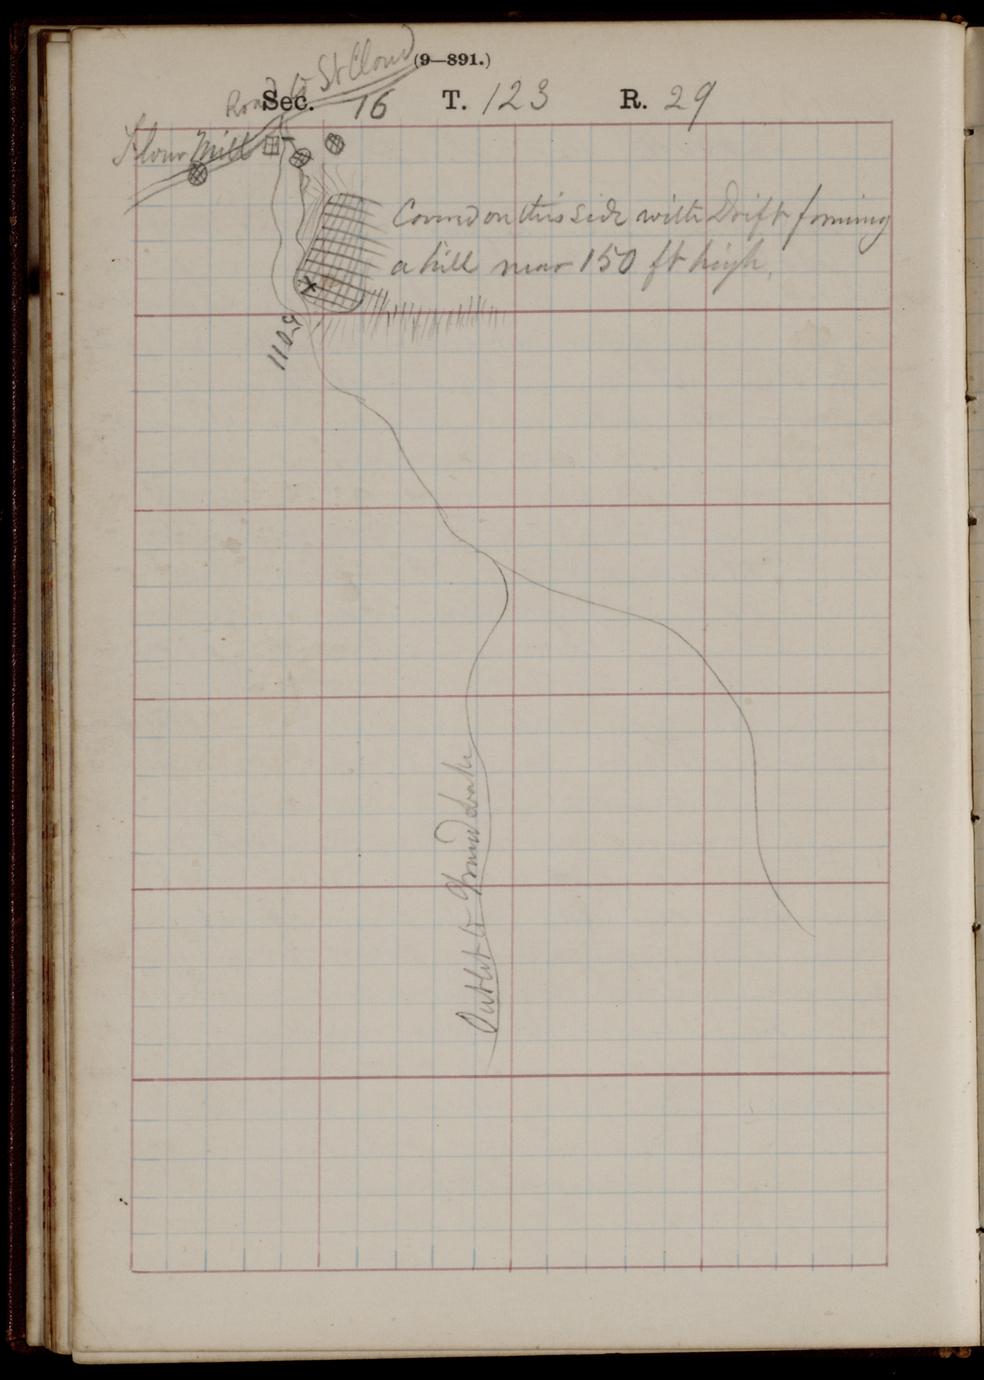 Road to St Cloud
(9—891.)
Sec. 16 T. 123 R. 29
Flour Mill
Covered on this side with Drift forming
a hill near 150 ft high.
1109
Outlet to Grand Lake